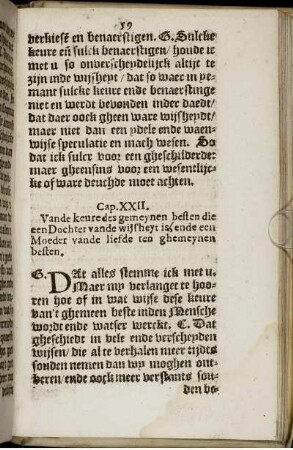 59
verkiest en benaerstigen. G. Sulcke
keure eñ sulck benaerstigen/ houde ic
met u so onverscheydelijck altijt te
zijn inde wijsheyt/ dat so waer in ye-
mant sulcke keure ende benaerstinge
niet en werdt bevonden inder daedt/
dat daer oock gheen ware wijsheydt/
maer niet dan een ydele ende waen-
wijse speculatie en mach wesen. So
dat ick sulcx voor een gheschilderde:
maer gheensins voor een wesentlijc-
ke of ware deuchde moet achten.
Cap. XXII.
Vande keure des gemeynen besten die
een Dochter vande wijsheyt is, ende een
Moeder vande liefde ten ghemeynen
besten.
G. DAt alles stemme ick met u.
Maer my verlanget te hoo-
ren hoe of in wat wijse dese keure
van't ghemeen beste inden Mensche
wordt ende watser werckt. C. Dat
gheschiedt in vele ende verscheyden
wijsen/ die al te verhalen meer tijdts
souden nemen dan wy moghen ont-
beren/ ende oock meer verstants sou-
den be-